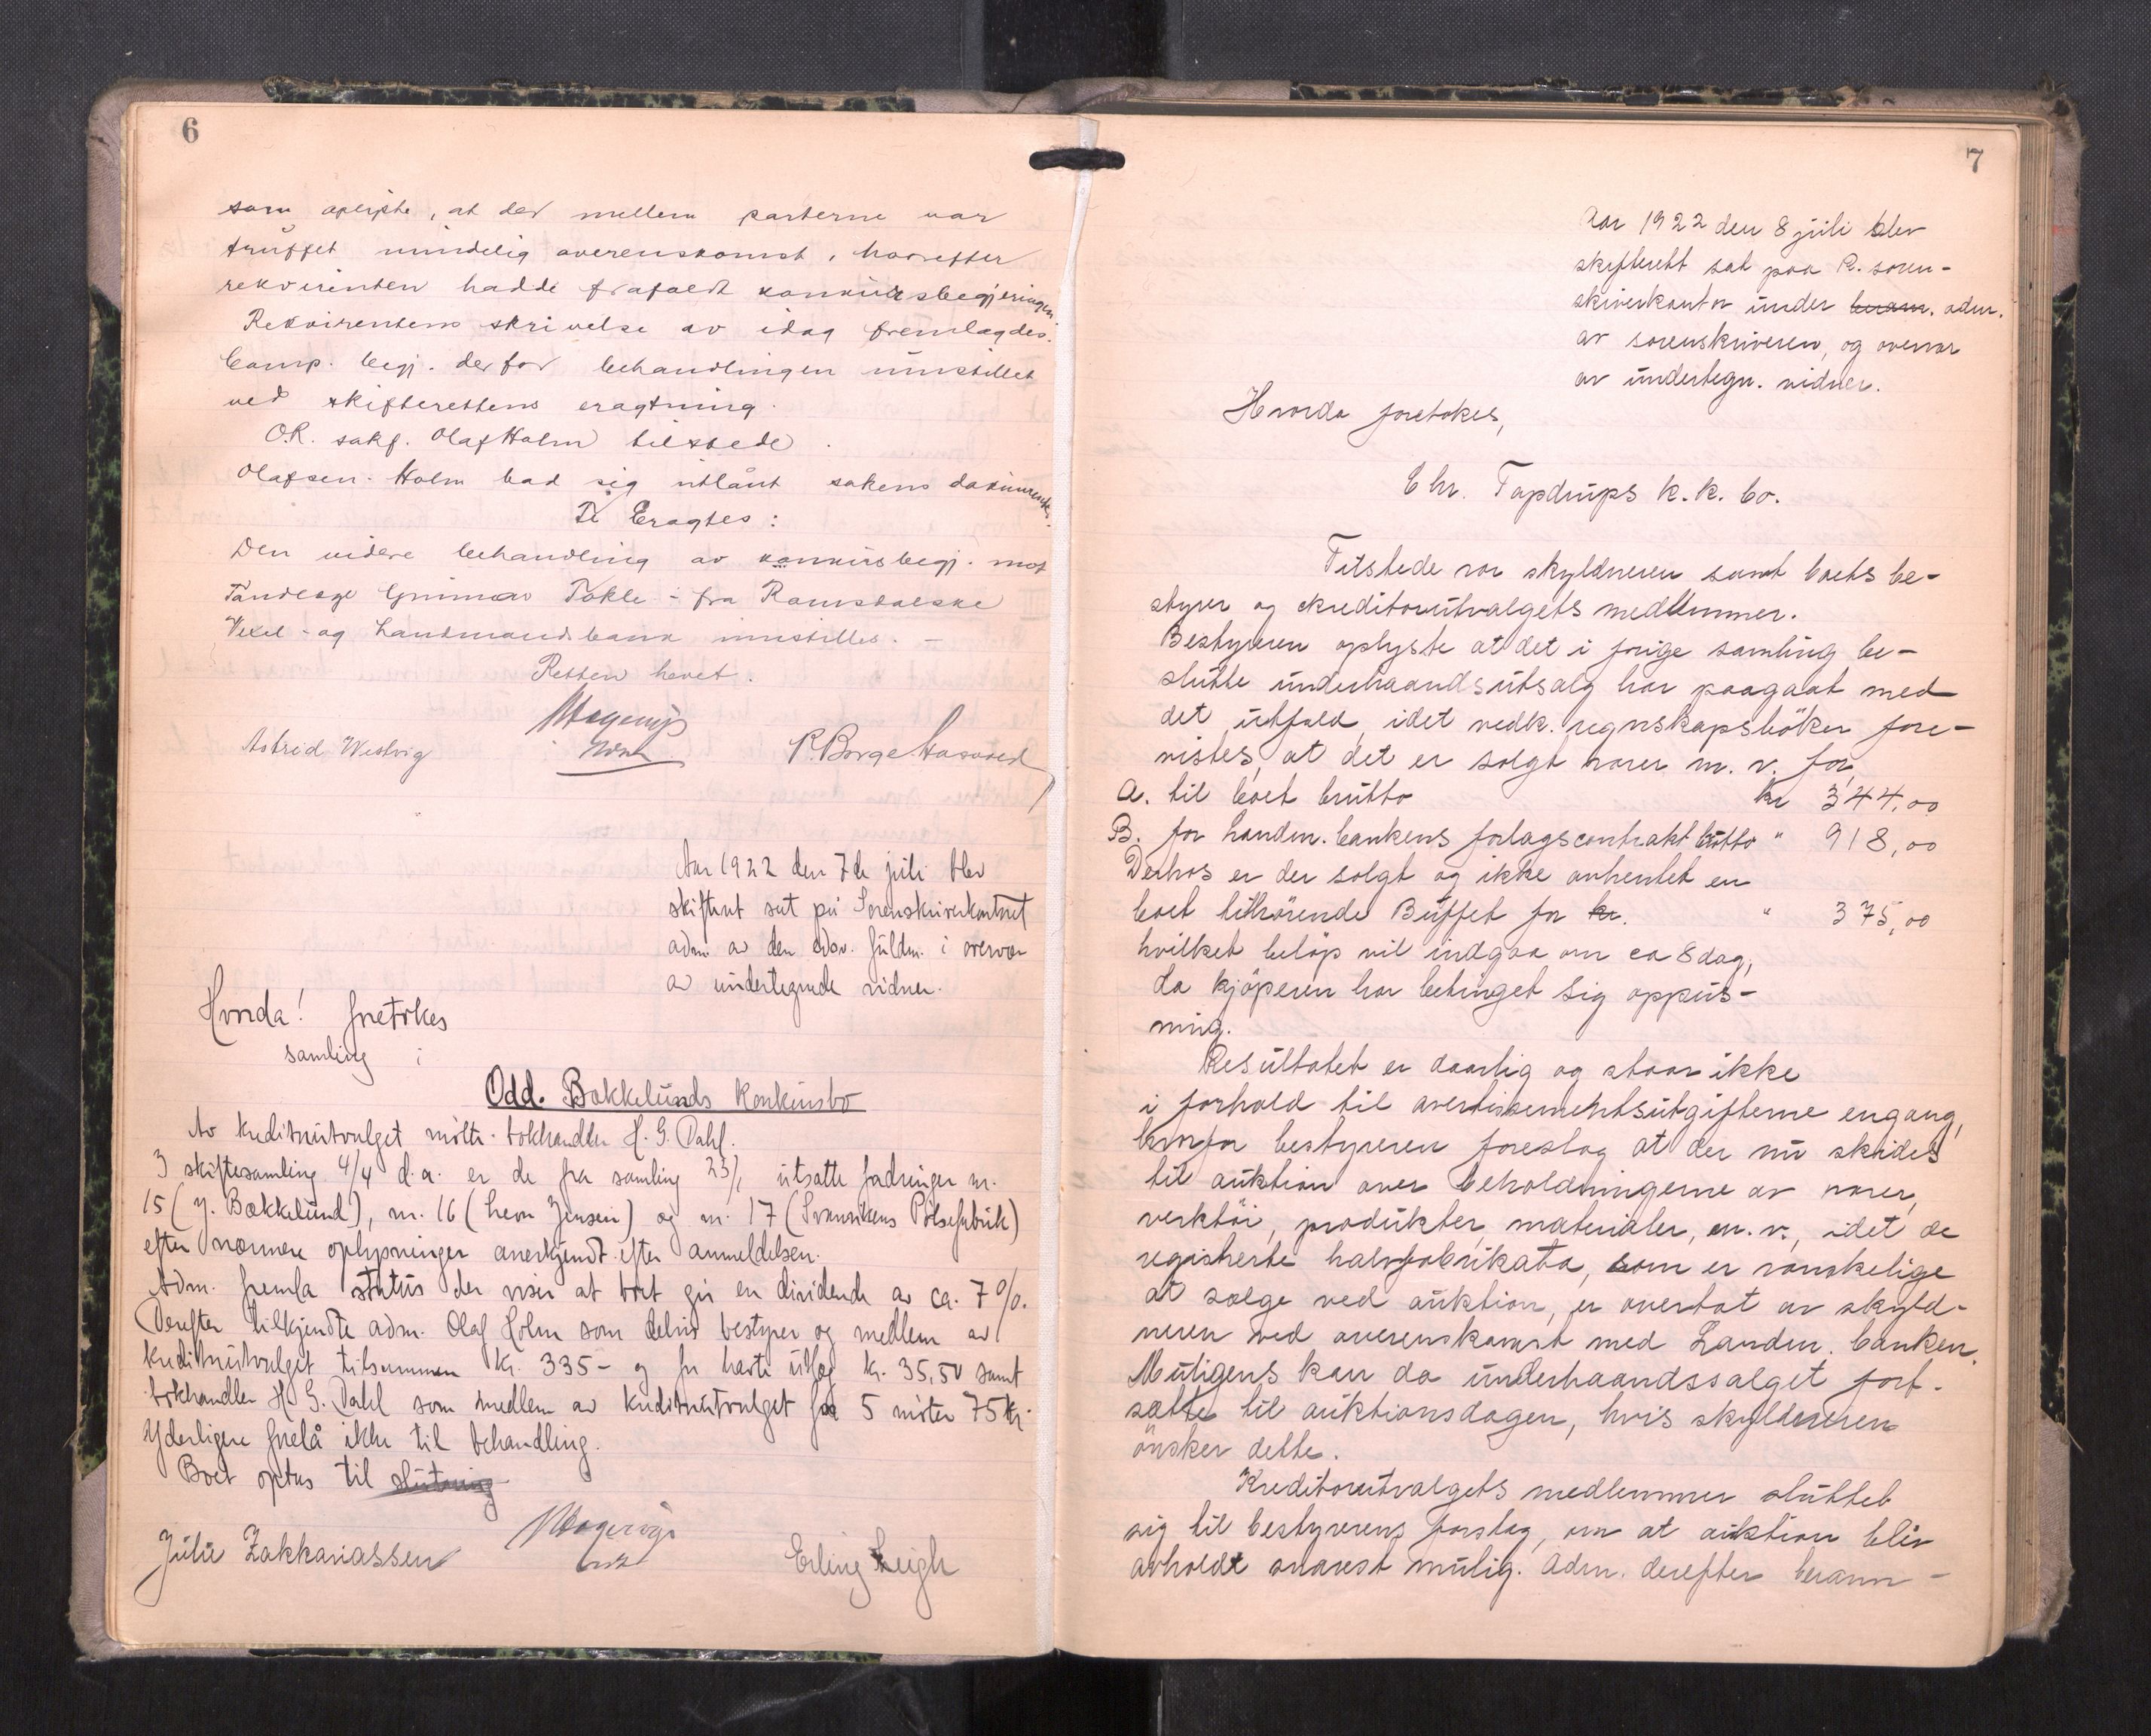 6
som oplyste, at der mellem parterne var
truffet mindelig overenskomst, hvorefter
rekvirenten hadde frafaldt konkursbegjeringen.
Rekvirentens skrivelse av idag fremlagdes.
Comp. begj. derfor behandlingen indstillet
ved skifterettens eragtning.
O.R. sakf. Olaf Holm tilstede.
Olafsen-Holm bad sig utlånt sakens dokumenter.
Eragtes:
Den videre behandling av konkursbegj. mot
Tandlæge Gunnar Tokle - fra Romsdalske
Vexel- og Landmandsbank innstilles. -
Retten hevet.
Astrid Westvig
Aar 1922 den 7de juli blev
skifteret sat på Sorenskriverkontoret
adm. av den edsv. fuldm. i overvær
av undertegnede vidner.
Hvorda! foretokes
samling i
Odd. Bakkelunds Konkursbo
Av kreditorutvalget møtte bokhandler H. G. Dahl.
I skiftesamling 4/4 d.a. er de fra samling 23/1 utsatte fordringer nr.
15 (J. Bakkelund), nr. 16 (Leon Jensen) og nr. 17 (Svansikens Pølsefabrik)
efter nærmere oplysninger anerkjendt efter anmeldelsen.
Adm. fremla status der viser at boet gir en dividende av ca. 7 %.
Derefter tilkjendte adm. Olaf Holm som delvis bestyrer og medlem av
kreditorutvalget tilsammen kr. 335- og for havte utlæg kr. 35,50 samt
bokhandler H. G. Dahl som medlem av kreditorutvalget for 5 møter 75 kr.
Yderligere forelå ikke til behandling.
Boet optas til slutning
Julie Zakkariassen
Erling Leigh
7
Aar 1922 den 8 juli blev
skifterett sat paa R. soren-
skriverkontor under beram. adm.
av sorenskriveren, og overvær
av undertegn. vidner.
Hvorda foretokes,
Chr. Tapdrups k.k. bo.
Tilstede var skyldneren samt boets be-
styrer og kreditorutvalgets medlemmer.
Bestyreren oplyste at det i forige samling be-
sluttte underhaandsutsalg har paagaat med
det utfald, idet vedk. regnskapsbøker fore-
vistes, at det er solgt varer m. v. for
A. til boet brutto kr 344,00
B. for Landm. bankens forlagscontrakt brutto " 918,00
Derhos er der solgt og ikke avhentet en
boet tilhørende Buffet for kr. " 375,00
hvilket beløp vil indgaa om ca 8 dag,
da kjøperen har betinget sig oppus-
ning.
Resultatet er daarlig og staar ikke
i forhold til avertissementsutgifterne engang,
hvorfor bestyreren foreslog at der nu skrides
til auktion over beholdningerne av varer,
verktøi, produkter, materialer, m. v., idet de
registrerte halvfabrikata, som er vanskelige
at sælge ved auktion, er overtat av skyld-
neren ved overenskomst med Landm. banken.
Muligens kan da underhaandssalget fort-
sætte til auktionsdagen, hvis skyldneren
ønsker dette.
Kreditorutvalgets medlemmer sluttet
sig til bestyrerens forslag, om at auktion blir
avholdt snarest mulig. Adm. derefter beram-